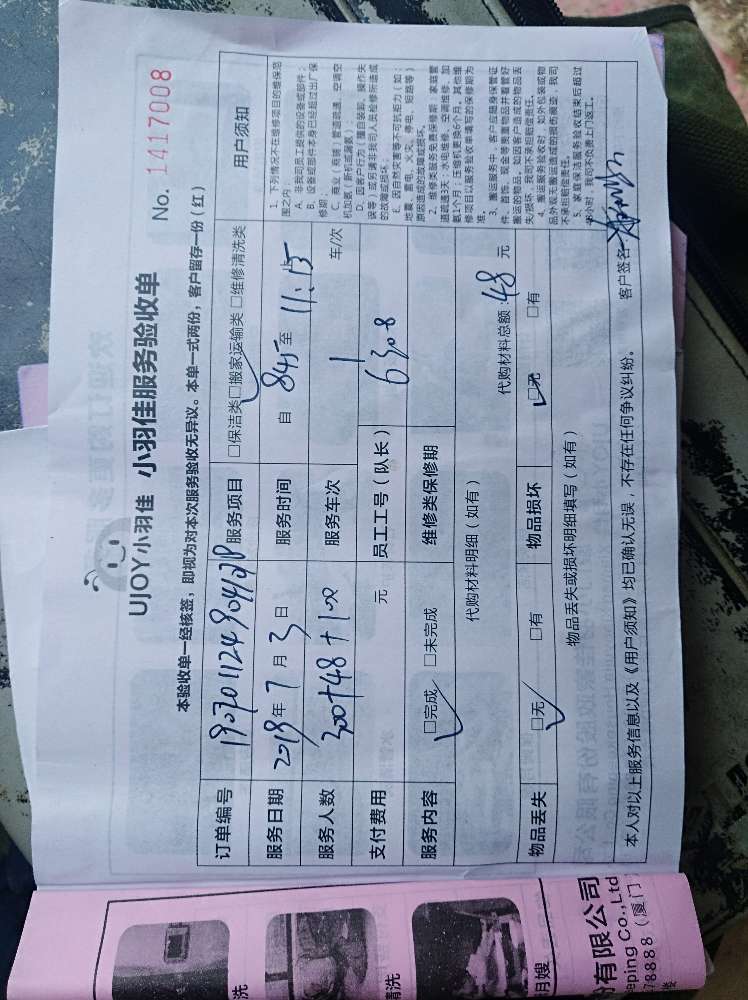 UJOY小羽佳 小羽佳服务验收单
No. 1417008
本验收单一经核签，即视为对本次服务验收无异议。本单一式两份，客户留存一份（红）
订单编号
服务项目 □保洁类 □搬家运输类 □维修清洗类
服务日期 2019年7月3日 服务时间 自 845 至 11:15
服务人数 300+48+100 服务车次 1 车/次
支付费用 元 员工工号（队长） 6308
服务内容 □完成 □未完成 维修类保修期
代购材料明细（如有） 代购材料总额：48元
物品丢失 □无 □有 物品损坏 □无 □有
物品丢失或损坏明细填写（如有）
本人对以上服务信息以及《用户须知》均已确认无误，不存在任何争议纠纷。 客户签名
用户须知
1. 下列情况不在维修项目的维保范
围之内：
A. 非我司员工提供的设备或部件；
B. 设备或部件本身已经超过出厂保
修期；
C. 商业（商铺）管道疏通、空调空
机加氨（新机或漏氨）
D. 因客户行为（擅自装卸、操作失
误等）或另请非我司人员检修所造成
的故障或损坏；
E. 因自然灾害等不可抗拒力（如：
地震、雷电、火灾、停电、短路等）
原因造成的故障或损坏。
2. 维修类服务免费保修期：家庭管
道疏通3天；水电维修、空调维修、加
氨1个月；压缩机更换6个月。其他维
修项目以服务验收单填写的保修期为
准。
3. 搬运服务中，客户应随身保管证
件、首饰、现金等贵重物品并看管好
搬运的物品，如因客户造成的物品丢
失/损坏，我司不承担赔偿责任。
4. 搬运服务验收时，如外包装或物
品外观无搬运造成的损伤痕迹，我司
不承担赔偿责任。
5. 家庭保洁服务验收结束后超过
小时，我司不负责上门返工。
份有限公司
eping Co.,Ltd
78888（厦门
清洗
月嫂
洗